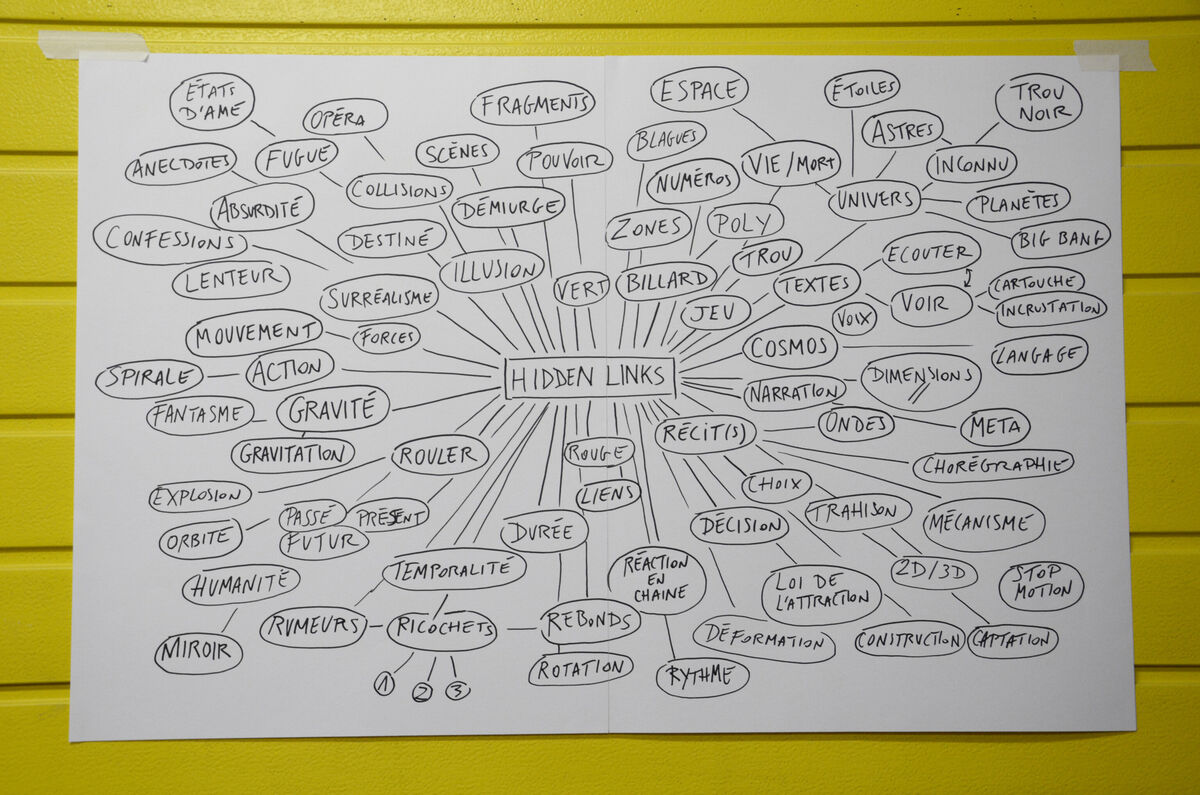 ÉTATS
D'AMÉ
OPÉRA
FRAGMENTS
ESPACE
ÉTOILES
TROU
NOIR
ANECDOTES
FUGUÉ
SCÈNES
POUVOIR
BLAGUES
VIE/MORT
ASTRES
INCONNU
COLLISIONS
NUMÉROS
ABSURDITÉ
DÉMIURGE
UNIVERS
PLANÈTES
CONFESSIONS
DESTINÉ
ZONES
POLY
BIG BANG
LENTEUR
ILLUSION
VERT
BILLARD
TROU
ECOUTER
SURRÉALISME
JEU
TEXTES
VOIR
CARTOUCHE
INCRUSTATION
MOUVEMENT
FORCES
VOIX
COSMOS
LANGAGE
SPIRALE
ACTION
HIDDEN LINKS
NARRATION
DIMENSIONS
FANTASME
GRAVITÉ
RÉCIT(S)
ONDES
META
GRAVITATION
ROULER
ROUGE
CHORÉGRAPHIE
EXPLOSION
LIENS
CHOIX
ORBITE
PASSÉ
PRÉSENT
FUTUR
DURÉE
DÉCISION
TRAHISON
MÉCANISMÉ
HUMANITÉ
TEMPORALITÉ
RÉACTION
EN
CHAINE
LOI DE
L'ATTRACTION
2D/3D
STOP
MOTION
MIROIR
RUMEURS
RICOCHETS
REBONDS
DÉFORMATION
CONSTRUCTION
CAPTATION
1
2
3
ROTATION
RYTHMÉ